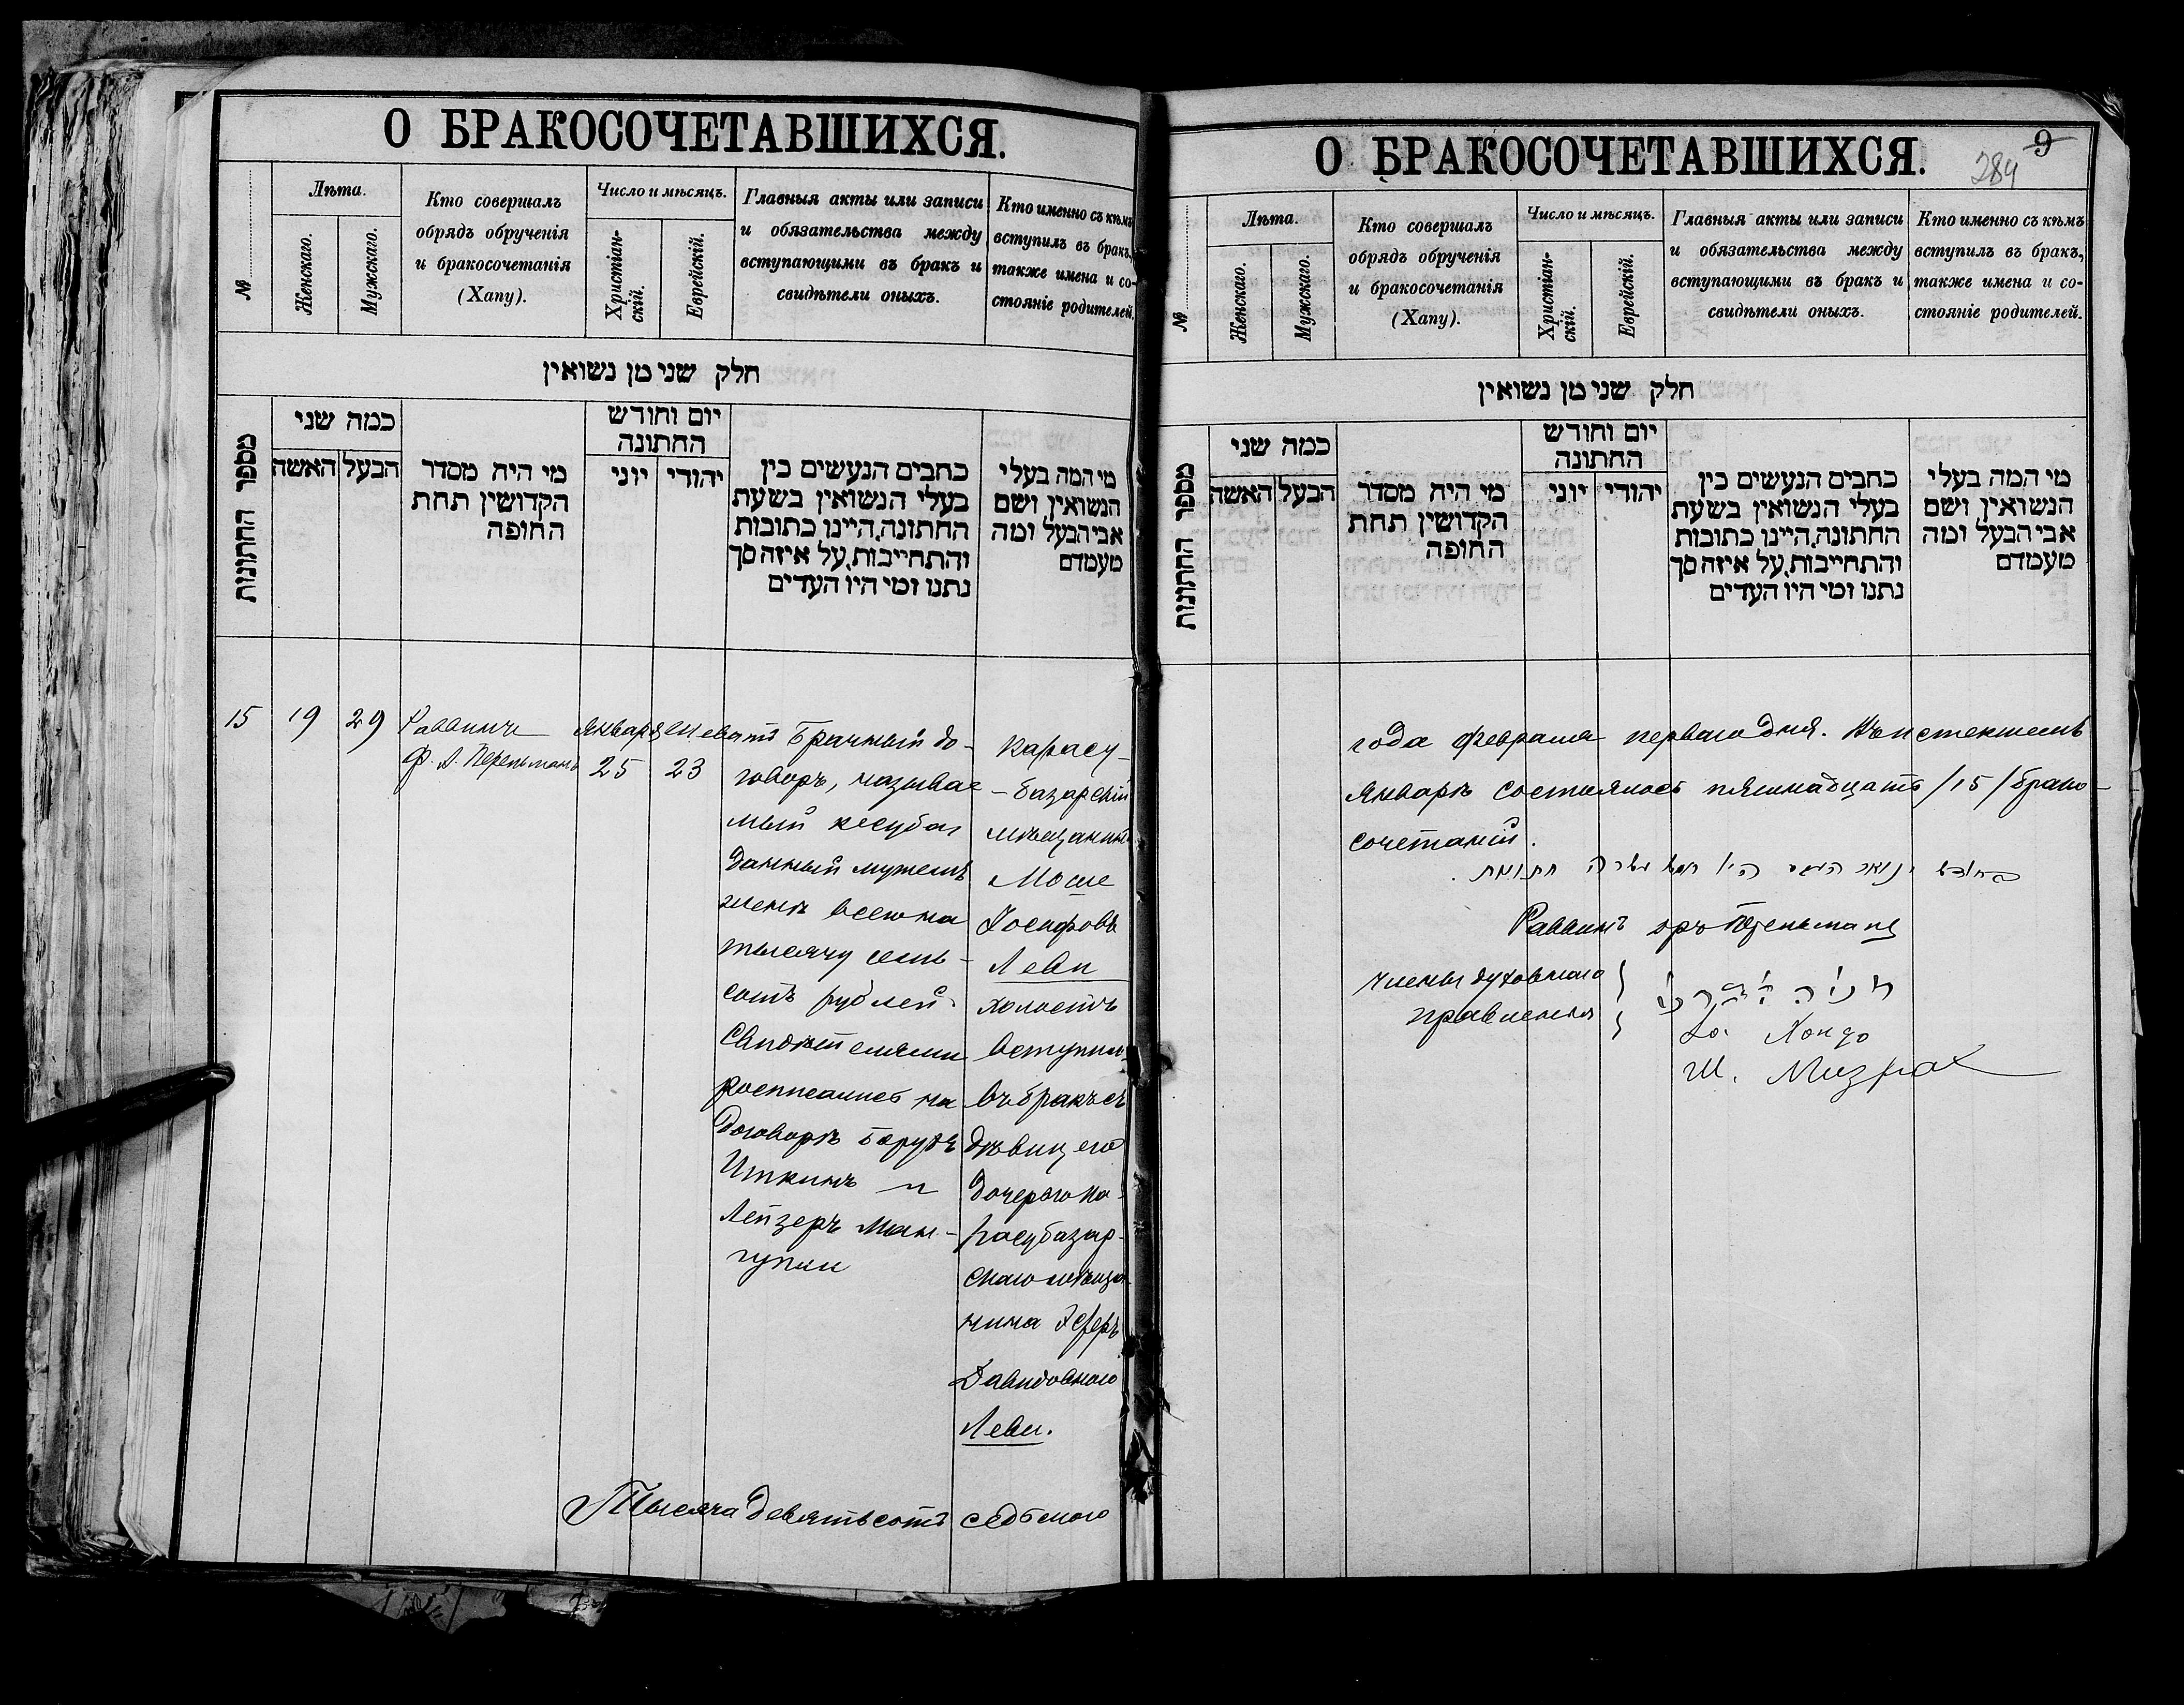 О БРАКОСОЧЕТАВШИХСЯ.
№
Лѣта.
Женскаго.
Мужскаго.
Кто совершалъ
обрядъ обрученія
и бракосочетанія
(Хапу).
Число и мѣсяцъ.
Христіан-
скій.
Еврейскій.
Главныя акты или записи
и обязательства между
вступающими въ бракъ и
свидѣтели оныхъ.
Кто именно съ кѣмъ
вступилъ въ бракъ,
также имена и со-
стояніе родителей.
חלק שני מן נשואין
מספר החתונות
כמה שני
האשה
הבעל
מי היה מסדר
הקדושין תחת
החופה
יום וחודש
החתונה
יוני
יהודי
כתבים הנעשים בין
בעלי הנשואין בשעת
החתונה, היינו כתובות
והתחייבות, על איזה סך
נתנו ומי היו העדים
מי המה בעלי
הנשואין ושם
אבי הבעל ומה
מעמדם
15
19
29
Раввинъ
Ф. Л. Перельманъ
Января
25
Шеватъ
23
Брачный до-
говоръ, называе
мый кесуба
данный мужемъ
женѣ всего на
тысячу семь-
сотъ рублей.
Свидѣтелями
росписались на
договорѣ Борухъ
Иткинъ и
Лейзеръ Ман-
гупли
Карасу-
-базарскій
мѣщанинъ
Моше
Іосифовъ
Леви
холостъ
вступилъ
въ бракъ съ
дѣвицею
дочерью Ка-
расубазар-
скаго мѣща-
нина Эсѳеръ
Давидовною
Леви.
Тысяча девятьсотъ седьмого
О БРАКОСОЧЕТАВШИХСЯ.
9
284
№
Лѣта.
Женскаго.
Мужскаго.
Кто совершалъ
обрядъ обрученія
и бракосочетанія
(Хапу).
Число и мѣсяцъ.
Христіан-
скій.
Еврейскій.
Главныя акты или записи
и обязательства между
вступающими въ бракъ и
свидѣтели оныхъ.
Кто именно съ кѣмъ
вступилъ въ бракъ,
также имена и со-
стояніе родителей.
חלק שני מן נשואין
מספר החתונות
כמה שני
האשה
הבעל
מי היה מסדר
הקדושין תחת
החופה
יום וחודש
החתונה
יוני
יהודי
כתבים הנעשים בין
בעלי הנשואין בשעת
החתונה, היינו כתובות
והתחייבות, על איזה סך
נתנו ומי היו העדים
מי המה בעלי
הנשואין ושם
אבי הבעל ומה
מעמדם
года февраля перваго дня. Въ истекшемъ
январѣ состоялось пятнадцать /15/ брако-
сочетаній.
בחודש ינואר היו חמש עשרה חתונות.
Раввинъ Перельманъ
Члены духовнаго
правленія
Хондо
Ш. Мизрах